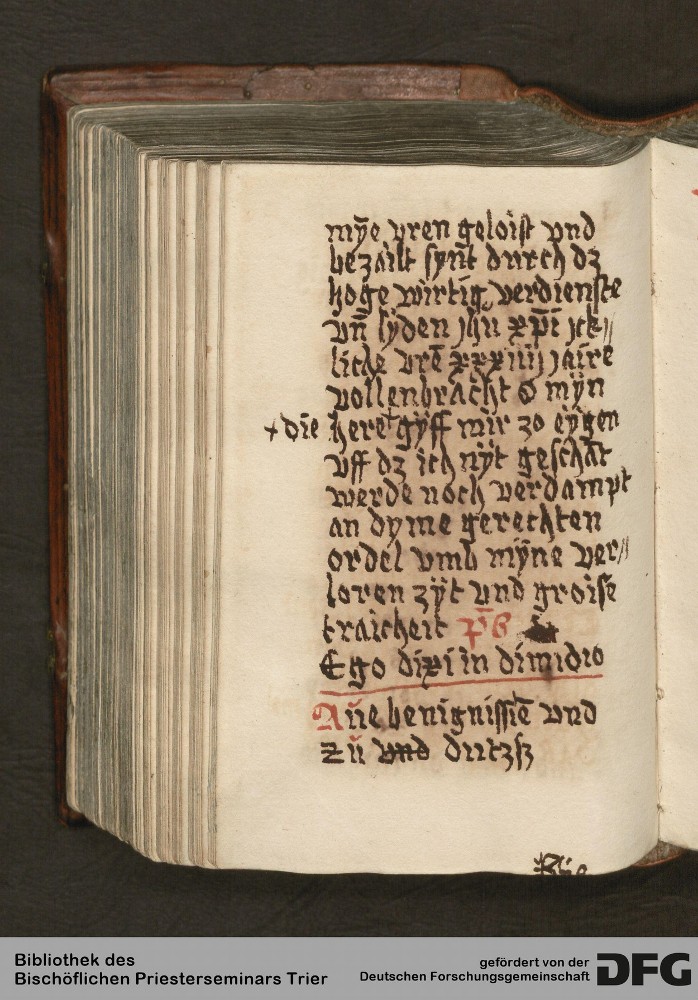 mÿe vren geloist vnd
bezailt synt durch dz
hoge wirtig verdienste
vn̄ lyden jhū xp̄i jtz//
liche vrē xxxiiij jaire
vollenbracht O mÿn
+ die here + gÿff mir zo eÿgen
vff dz ich nÿt geschāt
werde noch verdampt
an dyme gerechten
ordel vmb mÿne ver//
loren zÿt vnd groise
traicheit p̄s
Ego dixi in dimidio
Aue benignissiē vnd
zů vnd dutzsz
Bibliothek des
Bischöflichen Priesterseminars Trier
gefördert von der
Deutschen Forschungsgemeinschaft
DFG